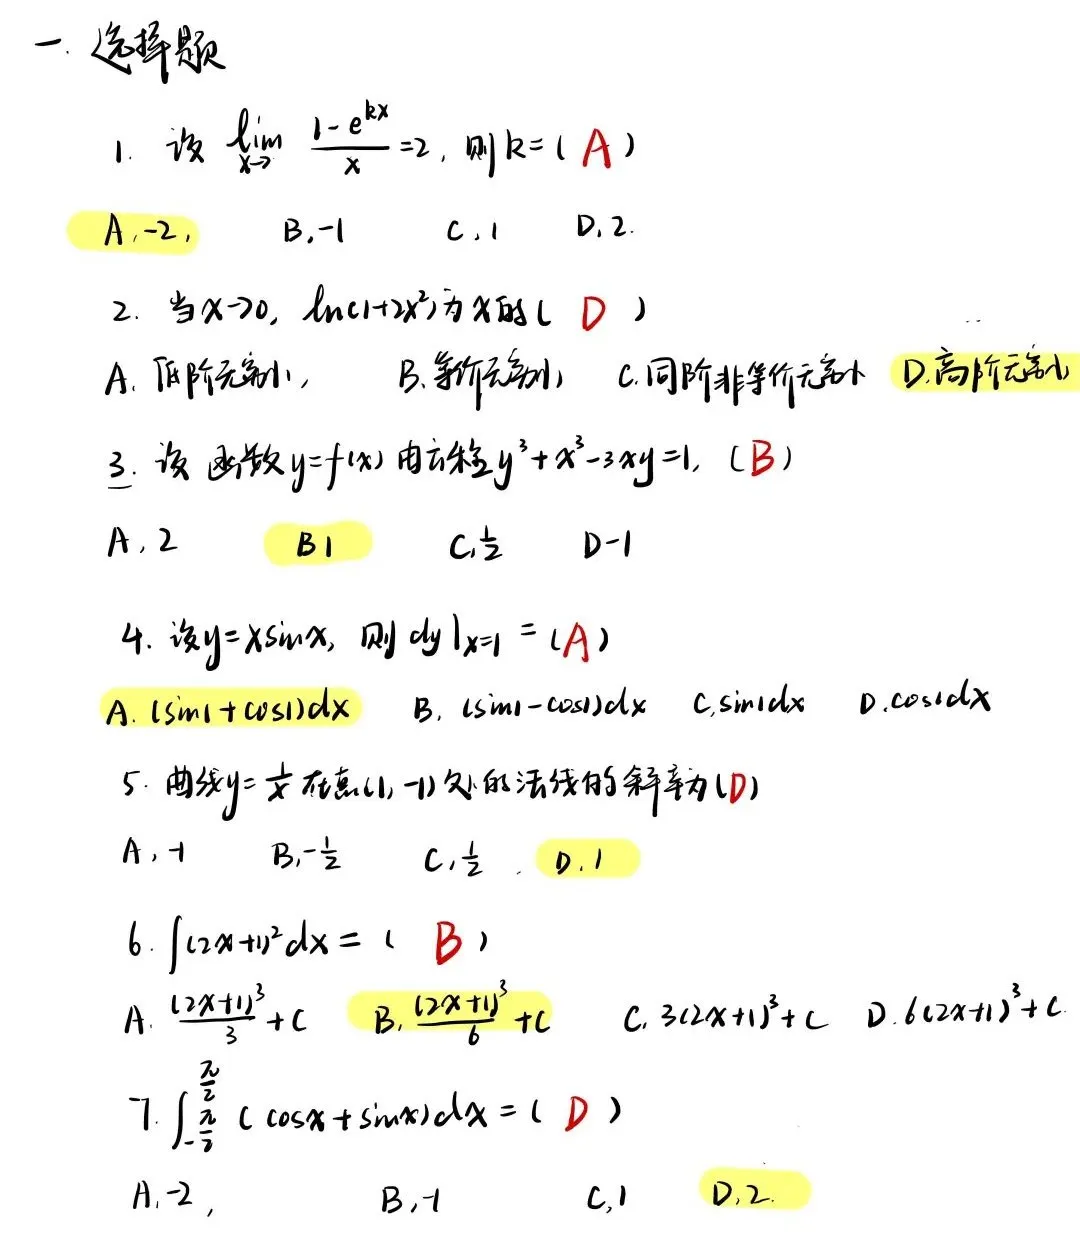 一. 选择题
1. 设 lim x→ (1-e^{kx})/x =2, 则k=( A )
A.-2, B.-1 C.1 D.2.
2. 当x→0, ln(1+2x²)为x的( D )
A. 低阶无穷小, B.等价无穷小, C.同阶非等价无穷小 D.高阶无穷小
3. 设函数y=f(x)由方程y³+x³-3xy=1, (B)
A, 2 B 1 C, 1/2 D -1
4. 设y=xsinx, 则dy|x=1 = (A)
A. (sin1+cos1)dx B. (sin1-cos1)dx C,sin1dx D.cos1dx
5. 曲线y=1/x在点(1,-1)处的法线的斜率为(D)
A, -1 B,-1/2 C, 1/2 D. 1
6. ∫(2x+1)²dx = ( B )
A. (2x+1)³/3 +C B. (2x+1)³/6 +C C. 3(2x+1)³+C D. 6(2x+1)³+C
7. ∫_{-π/2}^{π/2} (cosx+sinx)dx = ( D )
A.-2, B,-1 C,1 D,2.